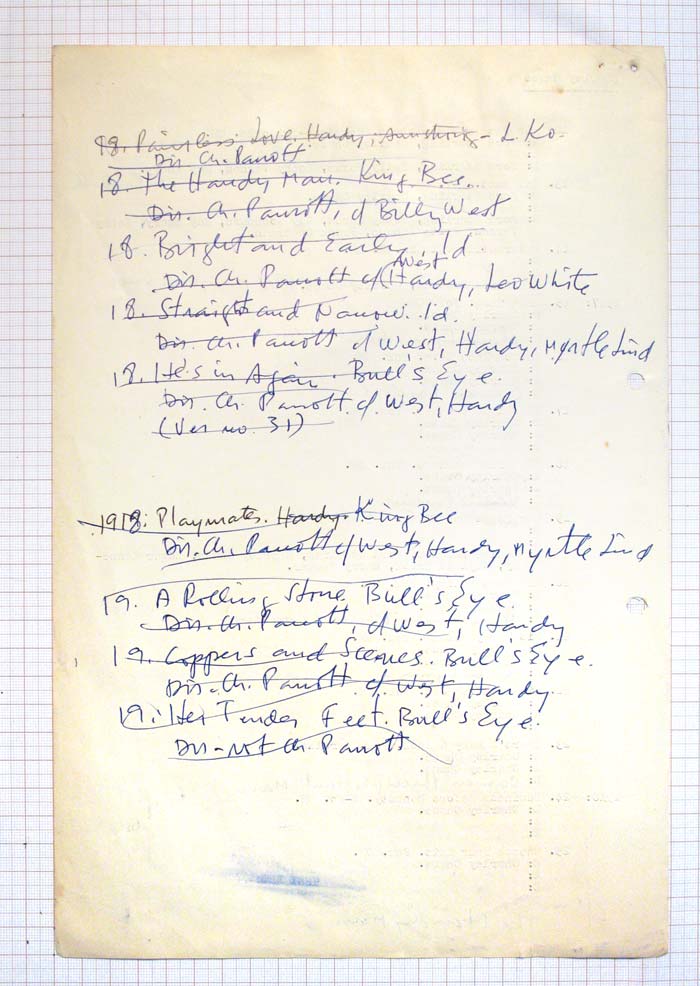 18. Painless Love. Hardy, Armstrong - L. Ko.
Dir. Ch. Parrott
18. The Handy Man. King Bee.
Dir. Ch. Parrott, c/ Billy West
18. Bright and Early. Id.
West
Dir. Ch. Parrott c/ Hardy, Leo White
18. Straight and Narrow. Id.
Dir. Ch. Parrott c/ West, Hardy, Myrtle Lind
18. He's in Again. Bull's Eye.
Dir. Ch. Parrott c/ West, Hardy
(Ver no. 31)
1918: Playmates. Hardy. King Bee
Dir. Ch. Parrott c/ West, Hardy, Myrtle Lind
19. A Rolling Stone. Bull's Eye.
Dir. Ch. Parrott, c/ West, Hardy
19. Coppers and Scenes. Bull's Eye.
Dir. Ch. Parrott c/. West, Hardy.
19: Her Tender Feet. Bull's Eye.
Dir - not Ch. Parrott